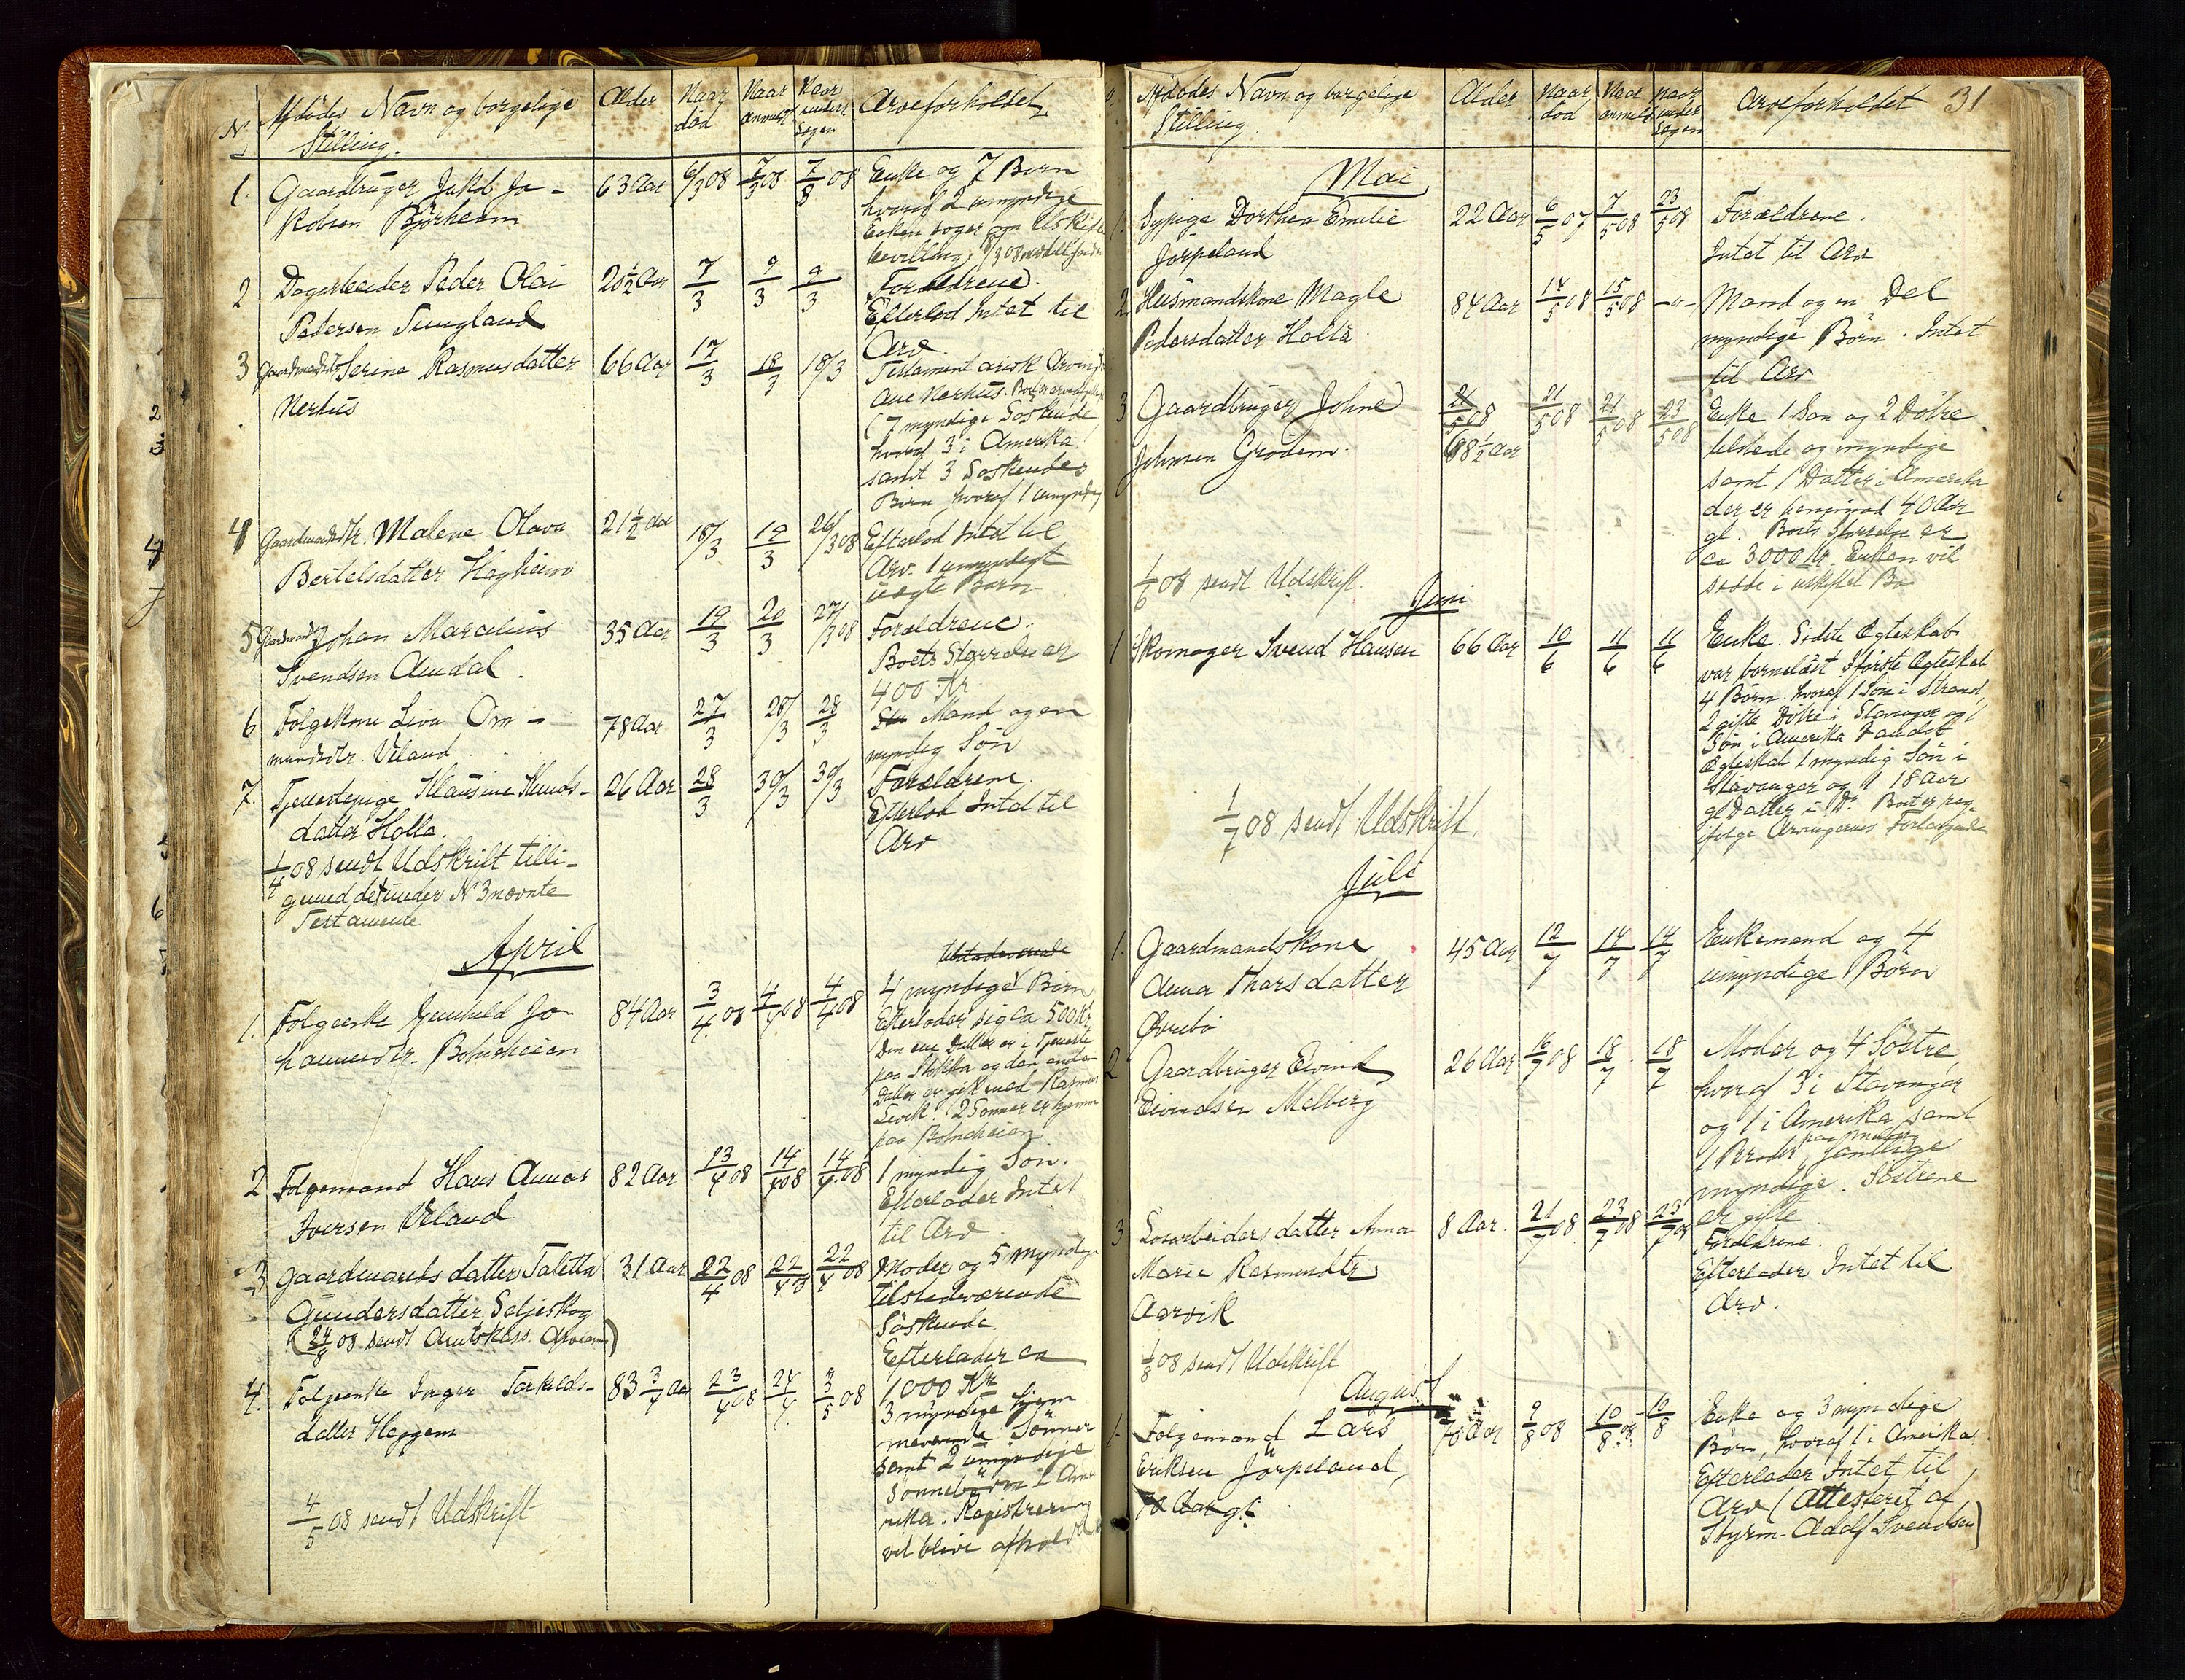 No Afdødes Navn og borgelige Stilling. Alder Naar død Naar anmeldt Naar undersøgen Arveforholdet
1. Gaardbruger Jakob Ja- 63 Aar 6/3 08 7/3 08 7/3 08 Enke og 7 Børn
kobsen Bjørheim hvoraf 2 umyndige
Enken søger om Uskifte
bevilling;
2 Dagarbeider Peder Olai 20½ Aar 7/3 9/3 9/3 Forældrene.
Pedersen Tungland Efterlod Intet til
Arv.
3 Gaardmandsdtr Serine Rasmusdatter 66 Aar 17/3 18/3 18/3 Testament arisk Arving
Nerhus Ane Nerhus.
(7 myndige Søskende,
hvoraf 3 i Amerika
samt 3 Søskendes
Børn, hvoraf 1 umyndig
4 Gaardmandsdtr. Malene Olava 21½ Aar 18/3 19/3 26/3 08 Efterlod Intet til
Bertelsdatter Høgheim Arv. 1 umyndigt
uægte Barn
5 Gaardmand Johan Marcelius 35 Aar 19/3 20/3 27/3 08 Forældrene.
Svendsen Amdal. Boets Størrelse er
400 Kr
6 Følgekone Siva Om- 78 Aar 27/3 28/3 28/3 Mand og en
mundsdtr. Veland myndig Søn
7. Tjenestepige Klausine Knuds- 26 Aar 28/3 30/3 30/3 Forældrene.
datter Holta. Efterlod Intet til
Arv
1/4 08 sendt Udskrift tilli-
gemed det under No 3 nævnte
Testamente
April
Tilstedeværende
1. Følgeenke Gunhild Jo- 84 Aar 3/4 08 4/4 08 4/4 08 4 myndige Børn
hannesdtr. Botneheien Efterlader sig ca 500 Kr
Den ene Datter er i Tjeneste
paa Stokka og den anden
Datter er gift med Rasmus
Levik. 2 Sønner er hjemme
paa Botneheien
2 Følgemand Hans Aunas 82 Aar 13/4 08 14/4 08 14/4 08 1 myndig Søn.
Iversen Veland Efterlader Intet
til Arv
3 Gaardmands datter Taletta 31 Aar 22/4 08 22/4 08 22/4 08 Moder og 5 myndige
Gundersdatter Seljeskog tilstedeværende
(24/8 08 sendt Amtskass. Søskende.
Efterlader ca
1000 Kr
4. Følgeenke Inger Torkelds- 83 3/4 Aar 23/4 08 24/4 3/5 08 3 myndige hjem
datter Heggem meværende Sønner
samt 2 umyndige
Sønnebørn i Ame
rika. Registrering
vil blive afholdt
4/5 08 sendt Udskrift
31
Afdødes Navn og borgelige Stilling. Alder Naar død Naar anmeldt Naar undersøgen Arveforholdet
Mai
1. Sypige Dorthea Emilie 22 Aar 6/5 07 7/5 08 23/5 08 Forældrene.
Jørpeland Intet til Arv
2 Husmandskone Magle 84 Aar 14/5 08 15/5 08 -"- Mand og en Del
Pedersdatter Holta myndige Børn. Intet
til Arv
3 Gaardbruger Johne 21/5 08 21/5 08 21/5 08 23/5 08 Enke 1 Søn og 2 Døtre
Johnsen Grødem. 68½ Aar tilstede og myndige
samt 1 Datter i Amerika
der er henimod 40 Aar
gl. Boets Størrelse er
ca 3000 Kr. Enken vil
sidde i uskiftet Bo
1/6 08 sendt Udskrift.
Juni
1 Skomager Svend Hansen 66 Aar 10/6 11/6 11/6 Enke. Sidste Ægteskab
var barneløst. I første Ægteskab
4 Børn hvoraf 1 Søn i Strand,
2 gifte Døtre i Stavanger og 1
Søn i Amerika I andet
Ægteskab 1 myndig Søn i
Stavanger og 1 18 Aar
gl Datter i Do. Boet er reg.
ifølge Arvingernes Forlangende
1/7 08 sendt Udskrift.
Juli
1. Gaardmandskone 45 Aar 12/7 14/7 14/7 Enkemand og 4
Anna Thorsdatter umyndige Børn
Øvrebø
2 Gaardbruger Eivind 26 Aar 16/7 08 18/7 18/7 Moder og 4 Søstre,
Eivindsen Melberg hvoraf 3 i Stavanger
og 1 i Amerika, samt
1 Broder, samtlige
myndige. Søstrene
er gifte
3 Løsarbeiders datter Anna 8 Aar. 21/7 08 23/7 08 23/7 08 Forældrene.
Marie Rasmusdtr Efterlader Intet til
Aarvik Arv.
1/8 08 sendt Udskrift
August
1. Følgemand Lars 70 Aar 9/8 08 10/8 08 10/8 Enke og 3 myndige
Eriksen Jørpeland, Børn, hvoraf 1 i Amerika.
70 Aar gl. Efterlader Intet til
Arv (Attesteret af
Styrm. Adolf Svendsen)